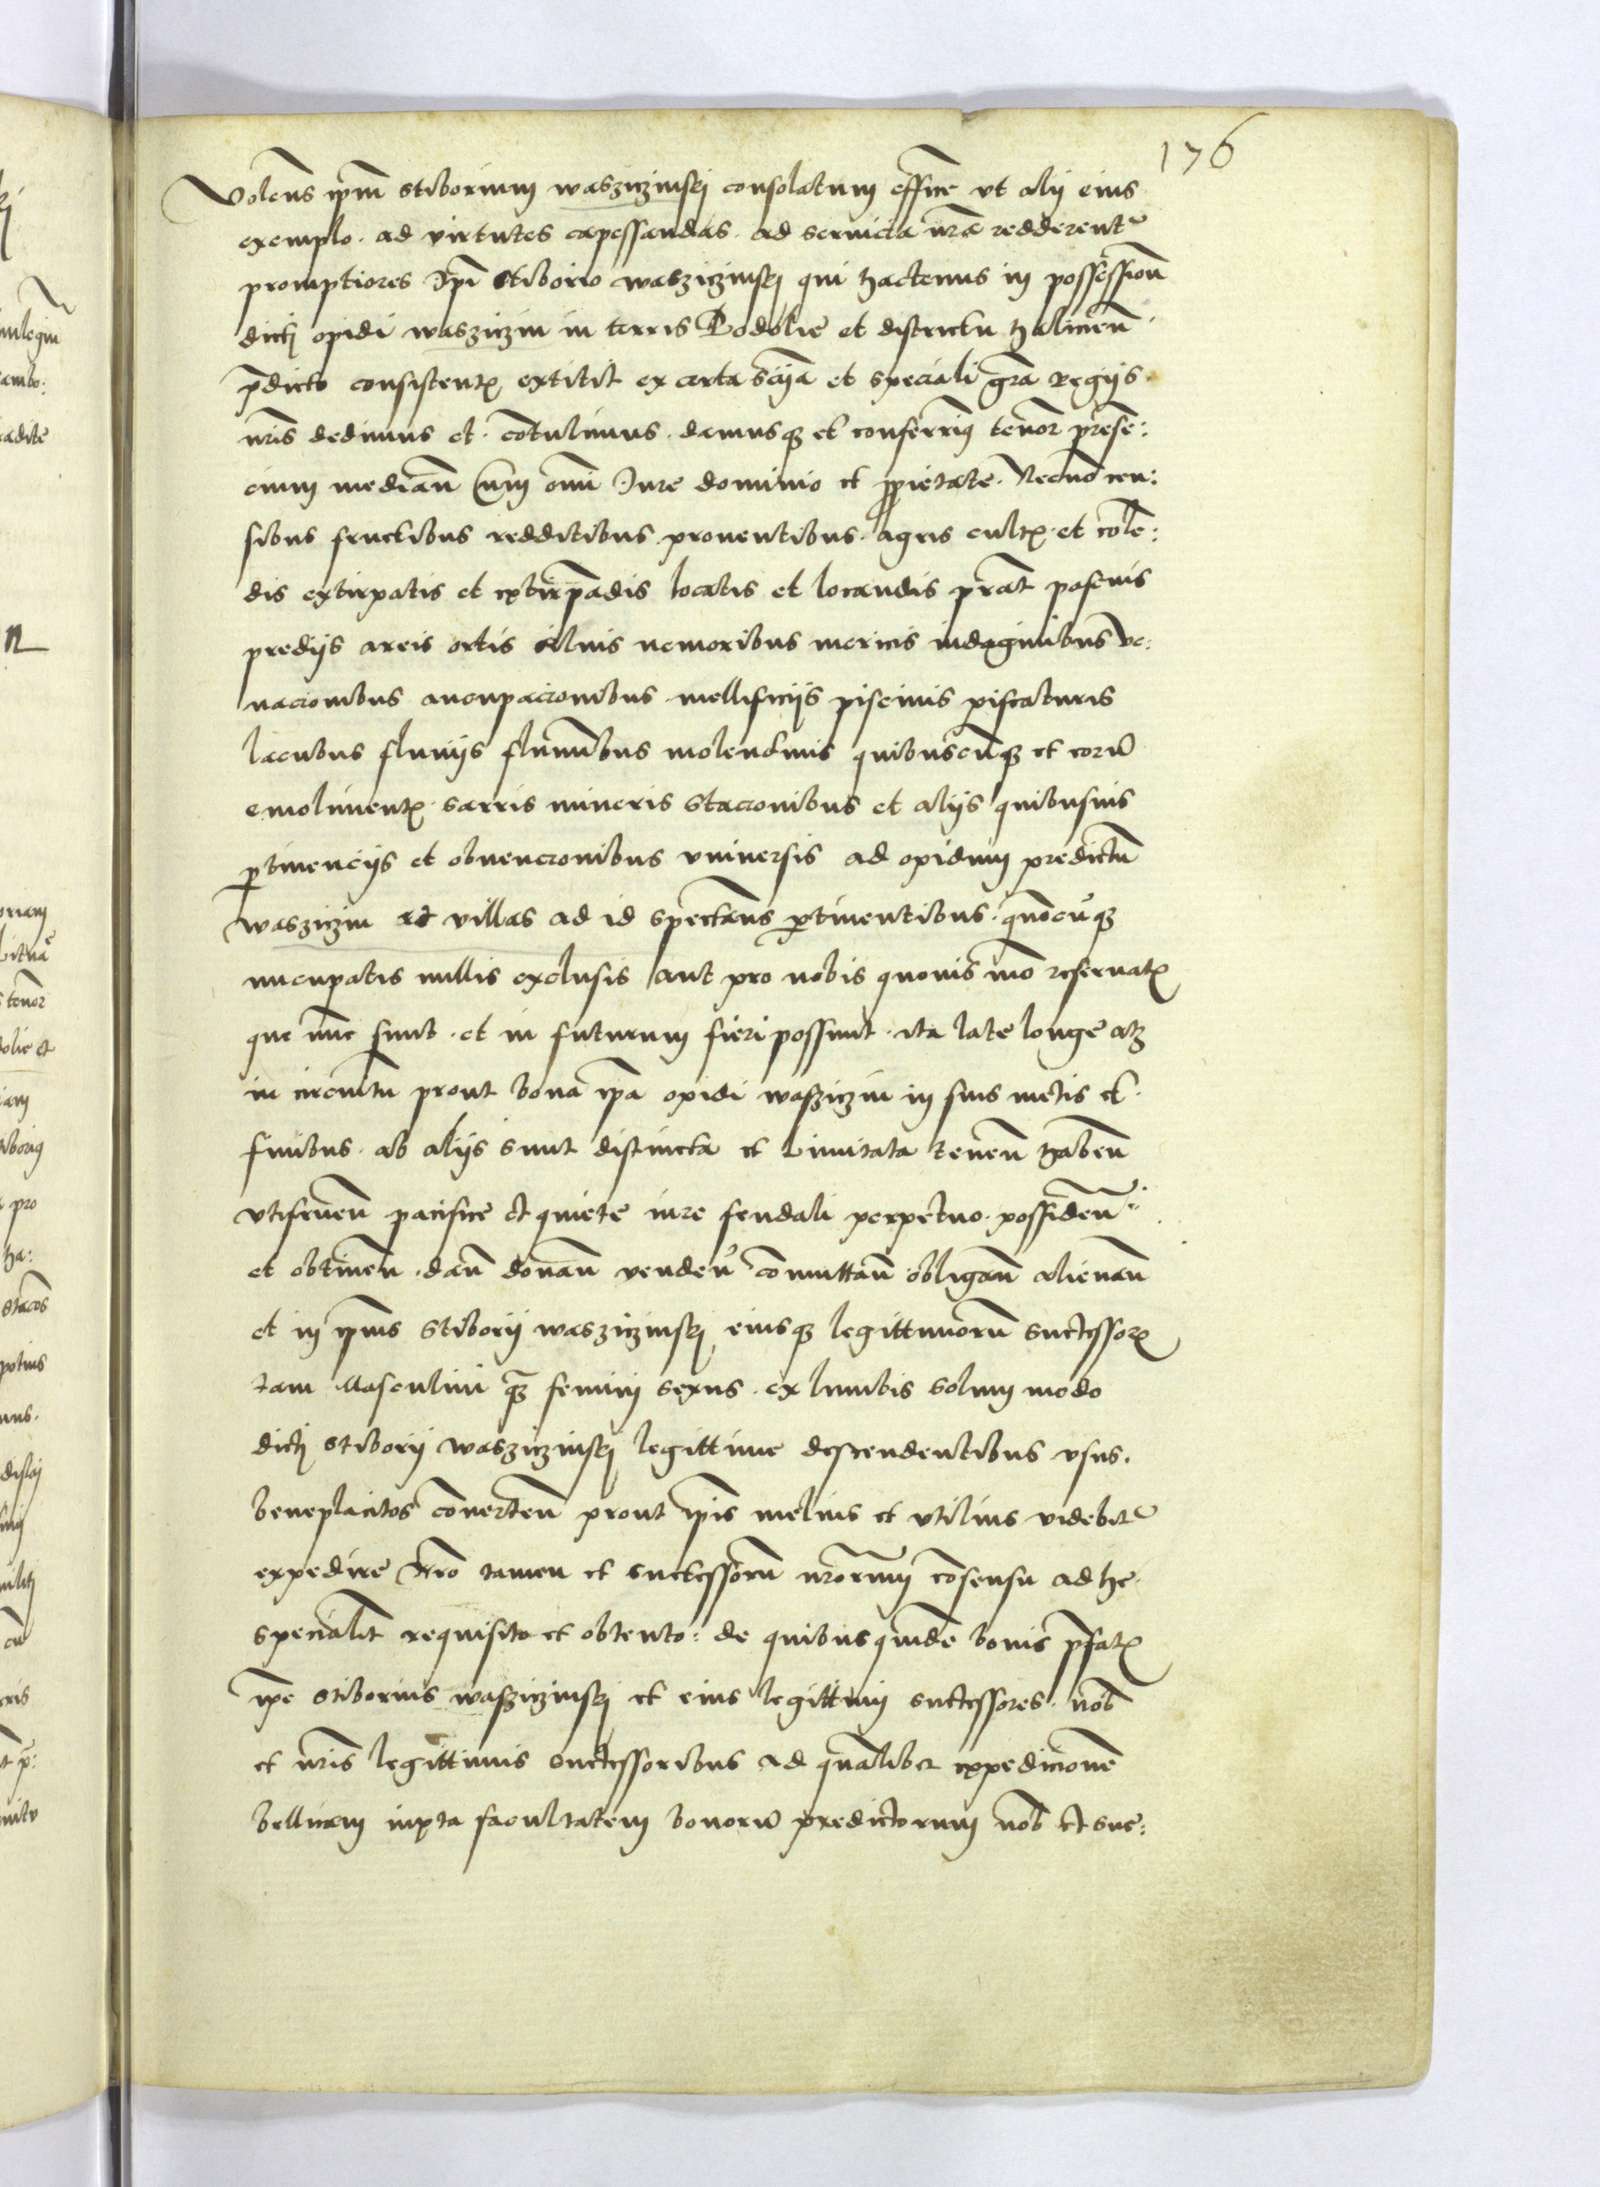 176
Volens ipm̄ stiborium waszicziusky consolatum efficē vt alij eius
exemplo · ad virtutes capessandas · ad seruicia nr̄a redderent᷑
promptiores Ipī Stiborio waszicziusky qui hactenus in possession̄
dictj opidi waszicziu in terris Podolie et districtu halicien̄
p̄dicto consistent extitit ex certa scīja et speciali grā Regijs
nr̄is dedimus et · cōtulimus · damusq et conferrimꝰ tenor̄ prēse:
cium median̄ Cum om̄i Jure dominio et ꝓprietate · Necnō cen:
sibus fructibus redditibus prouentibus · agris cult · et cole:
dis extirpatis et extirpādis locatis et locandis prat̄ pascuis
predijs areis ortis siluis nemoribus mericis indaginibus ve:
nacionibus aucupacionibus mellificijs piscinis piscaturis
lacubus fluuijs flūinibus molendinis quibuscūq et eorū
emoliment · sarris mineris stacionibus et alijs quibusuis
ꝑtinencijs et obuencionibus vniuersis ad opidum predictū
waszicziu ac villas ad id spectan̄s ꝑtinentibus · quōcūq
nucupatis nullis exclusis aut pro nobis quouis mō reseruat
que nūc sunt · et in futurum fieri possunt · ita late longe atq
in circuitu prout bona ipā opidi waszicziu in suis metis et
finibus · ab alijs sunt distincta et Limitata tenen̄ haben̄
vtifruen̄ pacifice et quiete iure feudali perpetuo · possiden̄
et obtinen̄ · dan̄ donan̄ venden̄ cōmuttan̄ obligan̄ alienan̄
et in ipīus Stiborij waszicziusky eiusq legittimorū successor
tam Masculini q̄ feminij sexus · ex lumbis solum modo
dictj Stiborij waszicziusky legittime descendentibus vsus ·
beneplacitos cōuerten̄ prout ipīs melius et vtilius videbit᷑
expedire Nr̄o tamen et successorū nr̄orum cōsensu ad hec
specialit̄ requisito et obtento : de quibusquidē bonis p̄fat
ipē Stiborius waszicziusky et eius legittimj successores · nob̄
et nr̄is legittimis successoribus ad quālibet expedicionē
bellicam iuxta facultatem bonorū predictorum nob̄ et suc: